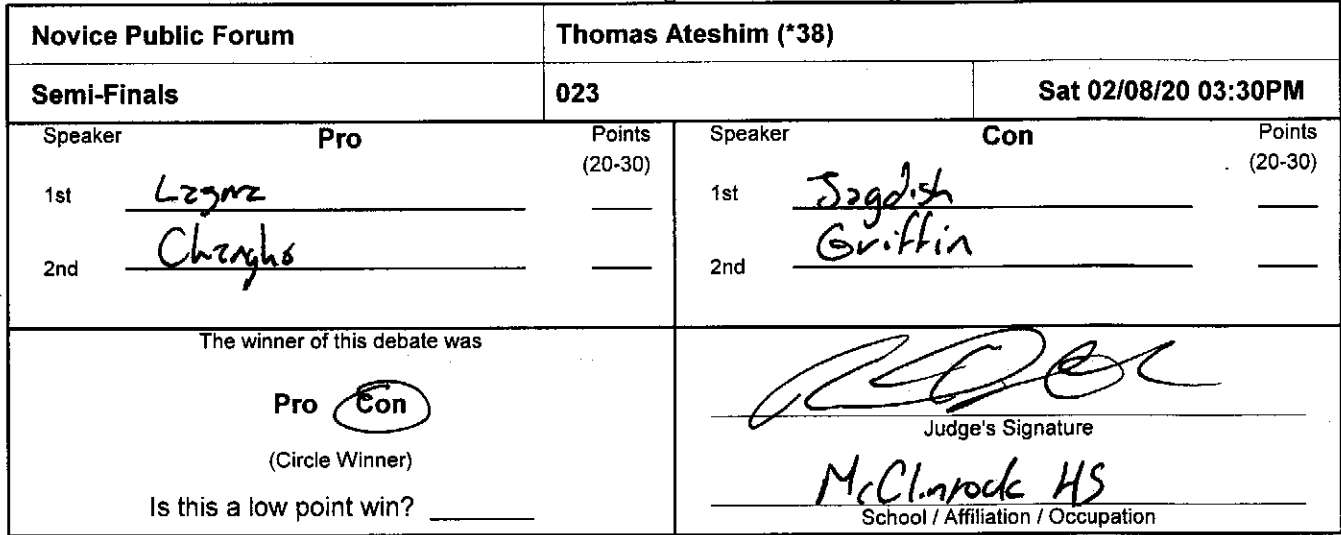 Novice Public Forum Thomas Ateshim (*38)
Semi-Finals 023 Sat 02/08/20 03:30PM
Speaker Pro Points Speaker Con Points
(20-30) (20-30)
1st 1st Jagdish
2nd 2nd Griffin
The winner of this debate was
Pro Con
(Circle Winner)
Is this a low point win?
Judge's Signature
HS
School / Affiliation / Occupation